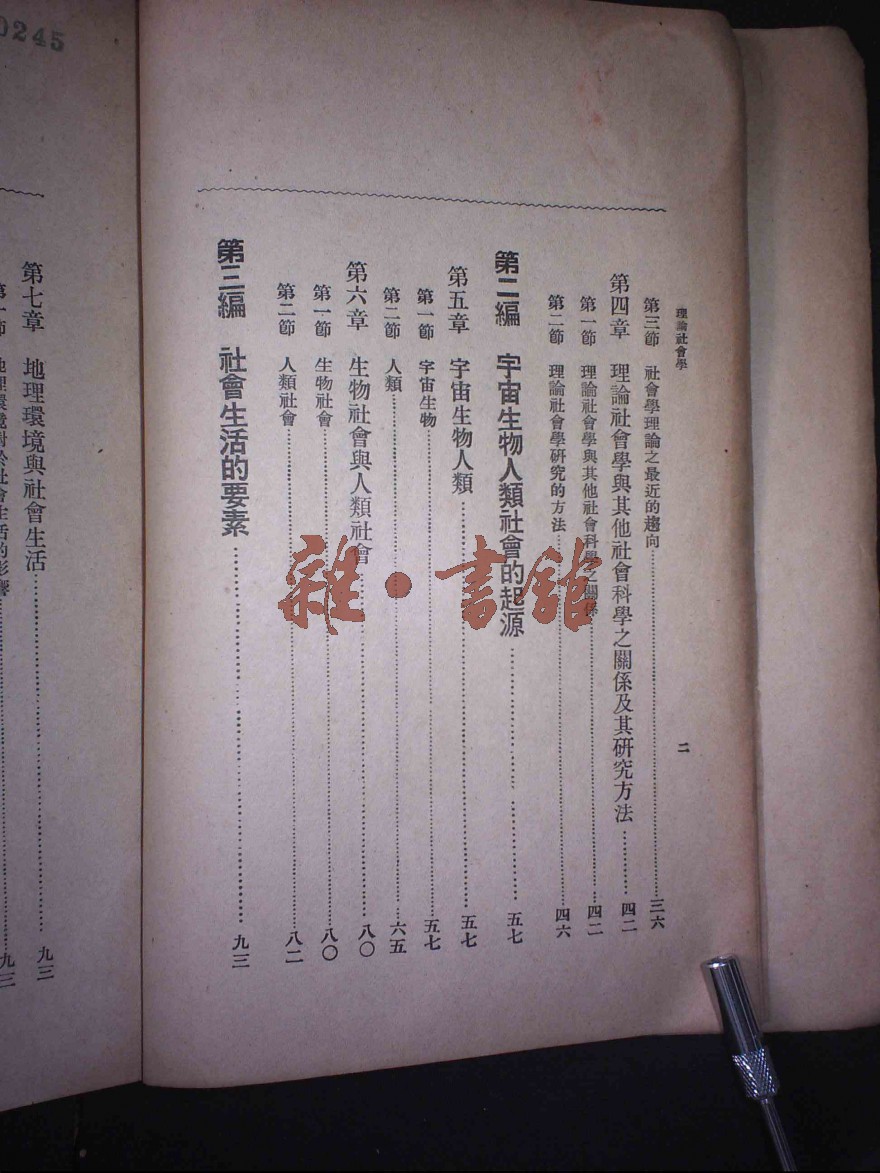 理論社會學
二
第三節 社會學理論之最近的趨向……三六
第四章 理論社會學與其他社會科學之關係及其研究方法……四二
第一節 理論社會學與其他社會科學之關係……四二
第二節 理論社會學研究的方法……四六
第二編 宇宙生物人類社會的起源……五七
第五章 宇宙生物人類……五七
第一節 宇宙生物……五七
第二節 人類……六五
第六章 生物社會與人類社會……八〇
第一節 生物社會……八〇
第二節 人類社會……八二
第三編 社會生活的要素……九三
第七章 地理環境與社會生活……九三
第一節 地理環境對於社會生活的影響……九三
雜·書館
0245